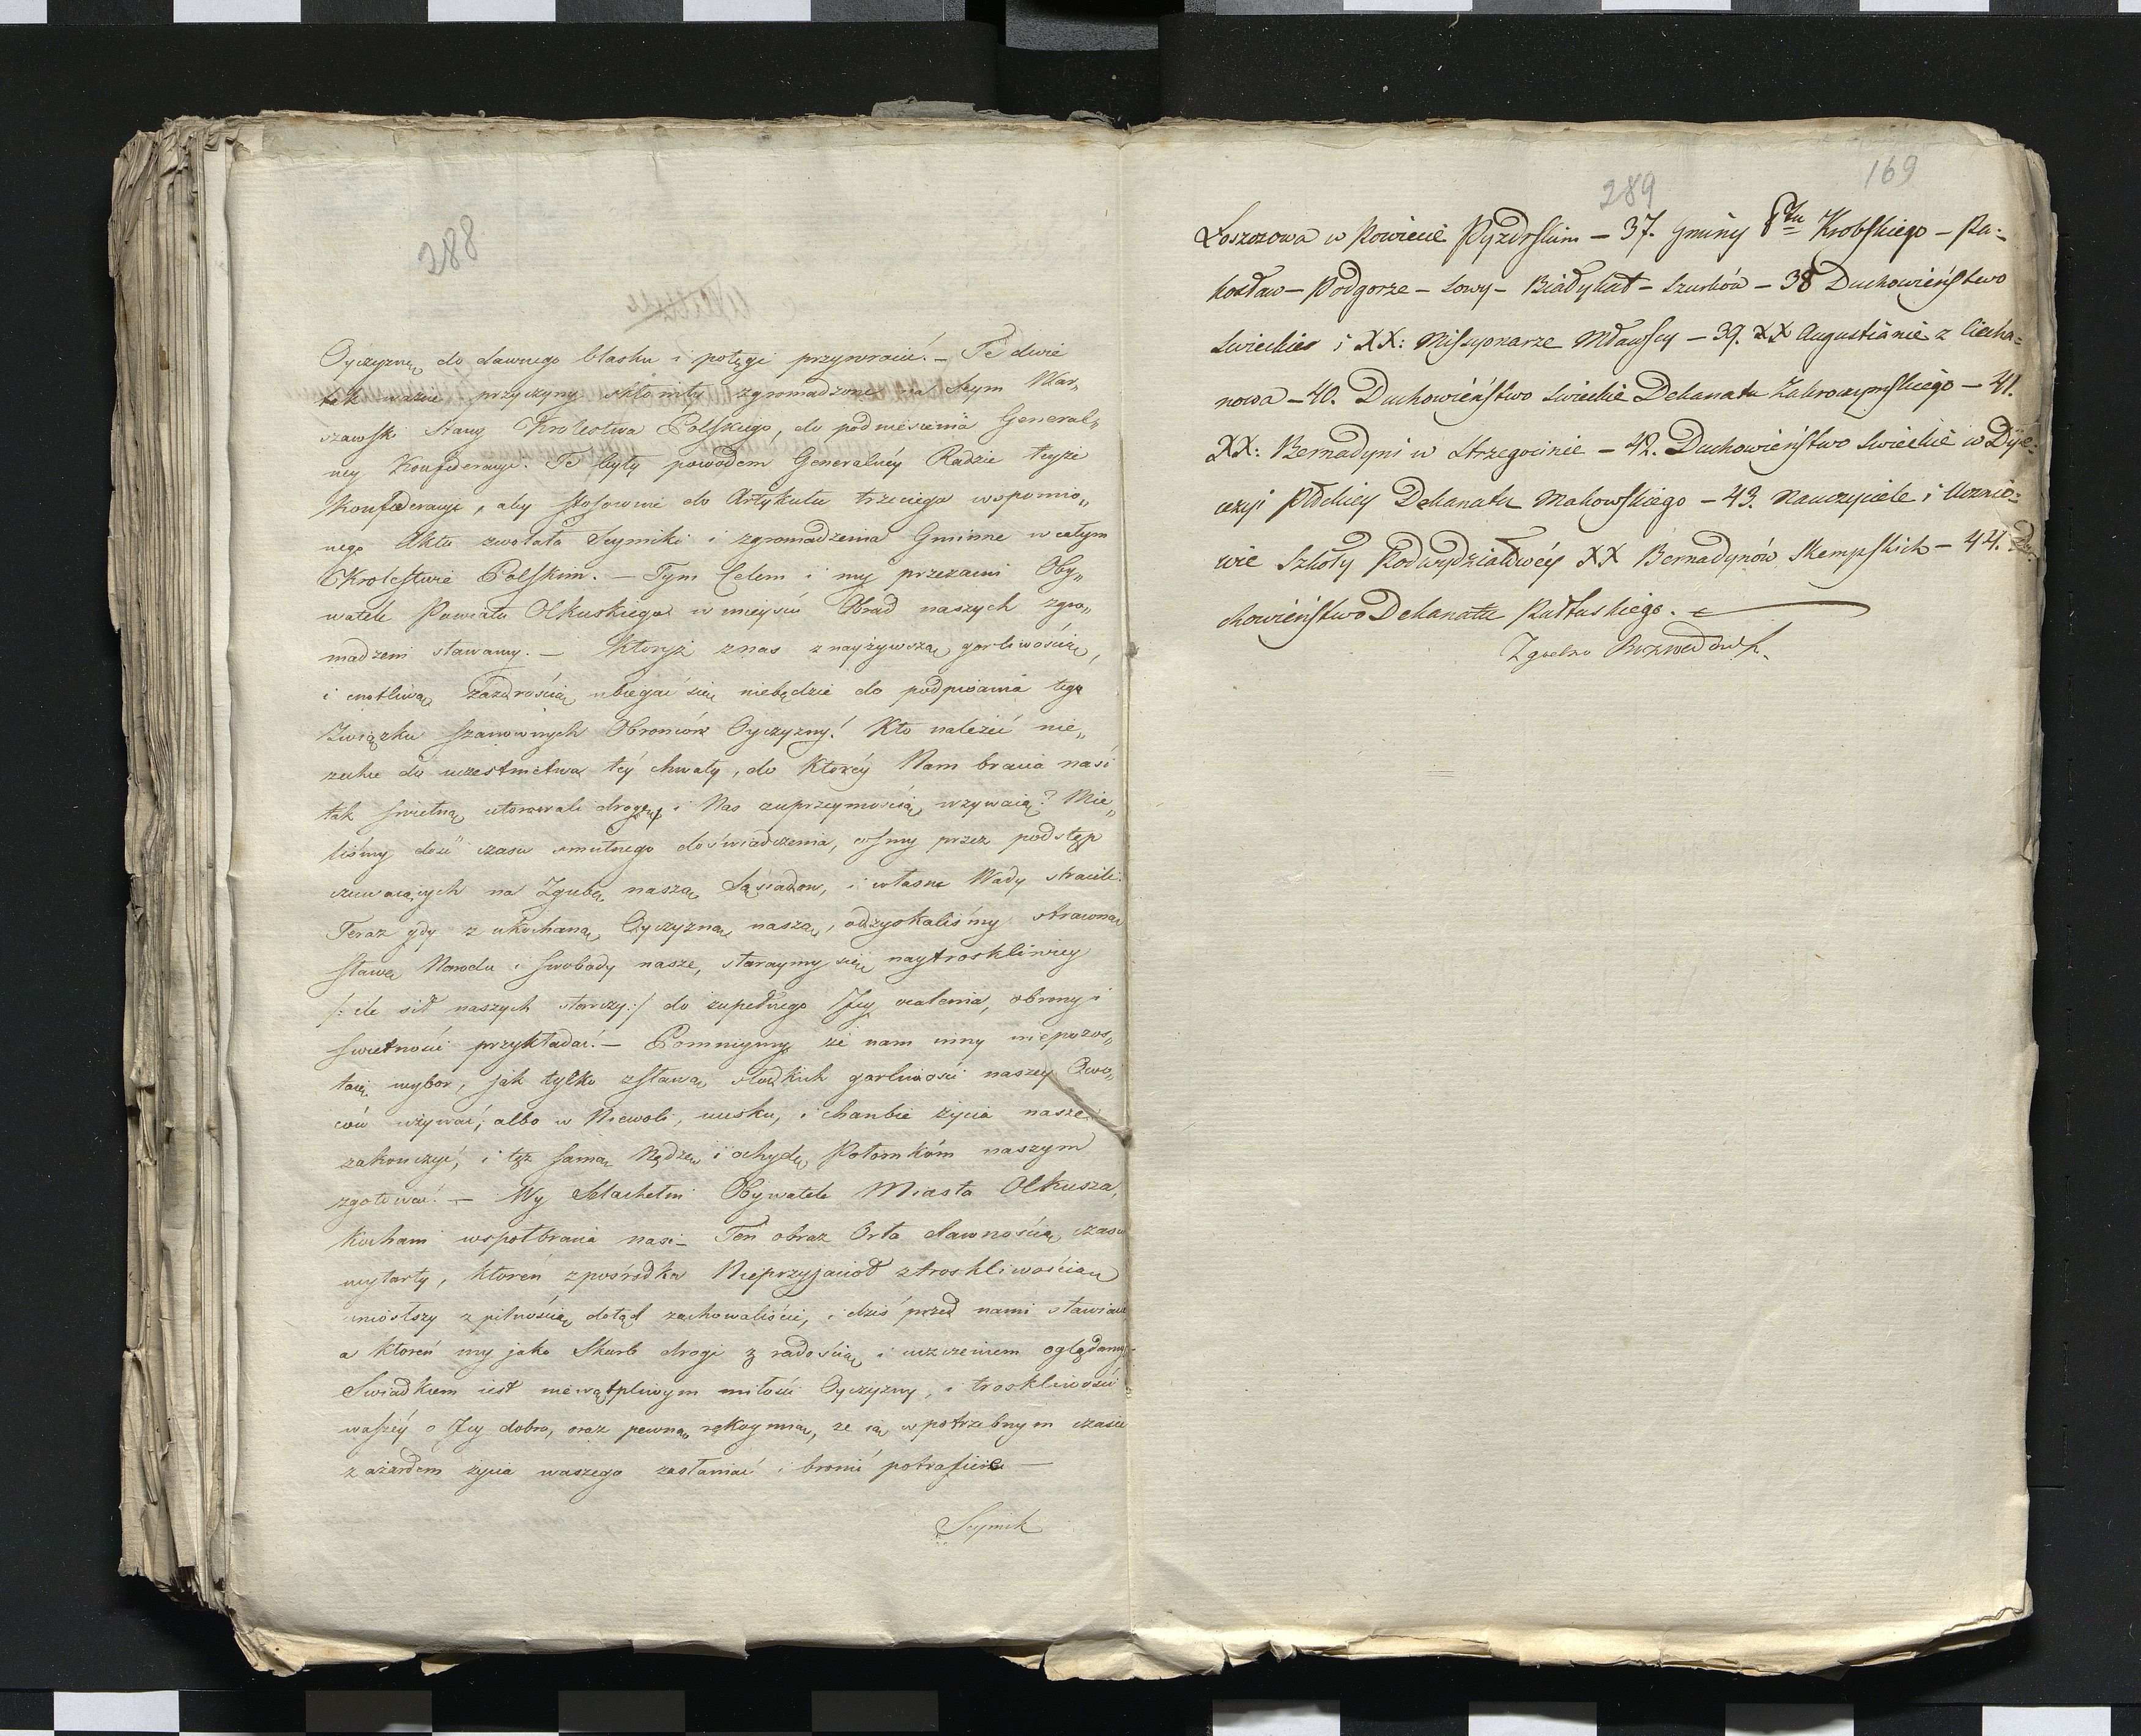 288
Oyczyznę do dawnego blasku i potęgi przywrócić! – Te dwie
tak ważne przyczyny skłoniły zgromadzone na Seym War„
szawski Stany Królestwa Polskiego, do podniesienia General„
ney Konfederacyi. Te były powodem Generalnéy Radzie teyże
Konfederacyi, aby stosownie do Artykułu trzeciego wspomnio„
nego Aktu zwołała Seymiki i zgromadzenia Gminne w całym
Krolestwie Polskim. – Tym Celem i my przezacni Oby„
watele Powiatu Olkuskiego w mieyscu Obrad naszych zgro„
madzeni stawamy. – Ktoryż znas znayżywszą gorliwością,
i cnotliwą zazdrością ubiegać się niebędzie do podpisania tego
Związku szanownych Obrońców Oyczyzny! Kto należeć nie„
zechce do uczestnictwa téy chwały, do Ktoréy Nam bracia nasi
tak świetną utorowali drogę, i Nas zuprzeymością wzywaią? Mie„
liśmy dość czasu smutnego doświadczenia, cośmy przez podstęp
czuwaiących na Zgubę naszą Sąsiadow, i własne Wady stracili.
Teraz gdy z ukochaną Oyczyzną naszą, odzyskaliśmy strawną
sławę Narodu i swobody nasze, staraymy się naytroskliwiey
/: ile sił naszych starczy :/ do zupełnego Jey ocalenia, obrony i
swietności przykładać! – Pomniymy że nam inny niepozos„
taie wybor, jak tylko zsławą słodkich gorliwości naszey Owo„
ców używać, albo w Niewoli, ucisku, i hanbie życia nasze
zakonczyć, i też samą Nędzę i ochydę Potomkóm naszym
zgotować! – Wy Szlachetni Obywatele Miasta Olkusza,
Kochani wspołbracia nasi – Ten obraz Orła dawnością czasu
wytarty, ktoren zpośrodka Nieprzyjacioł ztroskliwością
uniosłszy z pilnością dotąd zachowaliście, i dziś przed nami stawiacie
a ktoren my jako Skarb drogi z radością i uczczeniem oglądamy
Swiadkiem iest niewątpliwym miłości Oyczyzny, i troskliwości
waszéy o Jey dobro, oraz pewną rękoymią, że ią wpotrzebnym czasie
z azardem życia waszego zasłaniać i bronić potraficie –
Seymik
289
169
Łoszozowa w Powiecie Pyzdrskim – 37. Gminy Ptu Krobskiego – Pa-
kosław – Podgorze – Sowy – Białykał – Szurków – 38 Duchowieństwo
Swieckie i XX: Missyonarze Mławscy – 39. XX Augustianie z Ciecha-
nowa – 40. Duchowieństwo Swieckie Dekanatu Zakroczymskiego – 41.
XX: Bernadyni w Strzegocinie – 42. Duchowieństwo Swieckie w Dye-
cezyi Płockiey Dekanatu Makowskiego – 43. Nauczyciele i Ucznio-
wie Szkoły Podwydziałowéy XX Bernadynów Skempskich – 44. Du-
chowieństwo Dekanatu Pułtuskiego.
Zgodno